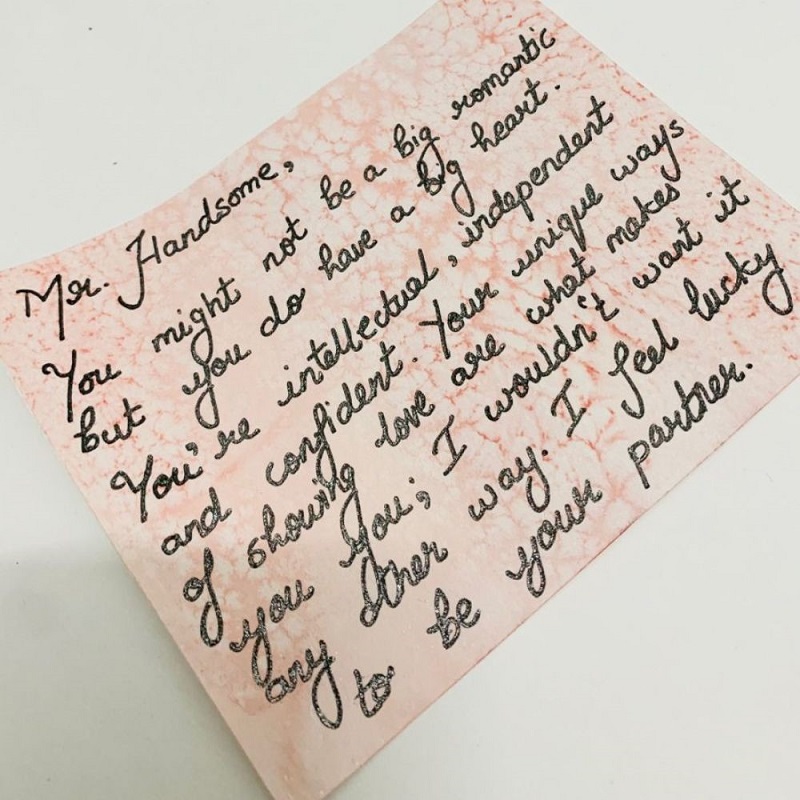 Mr. Handsome,
You might not be a big romantic
but you do have a big heart.
You're intellectual, independent
and confident. Your unique ways
of showing love are what makes
you you; I wouldn't want it
any other way. I feel lucky
to be your partner.